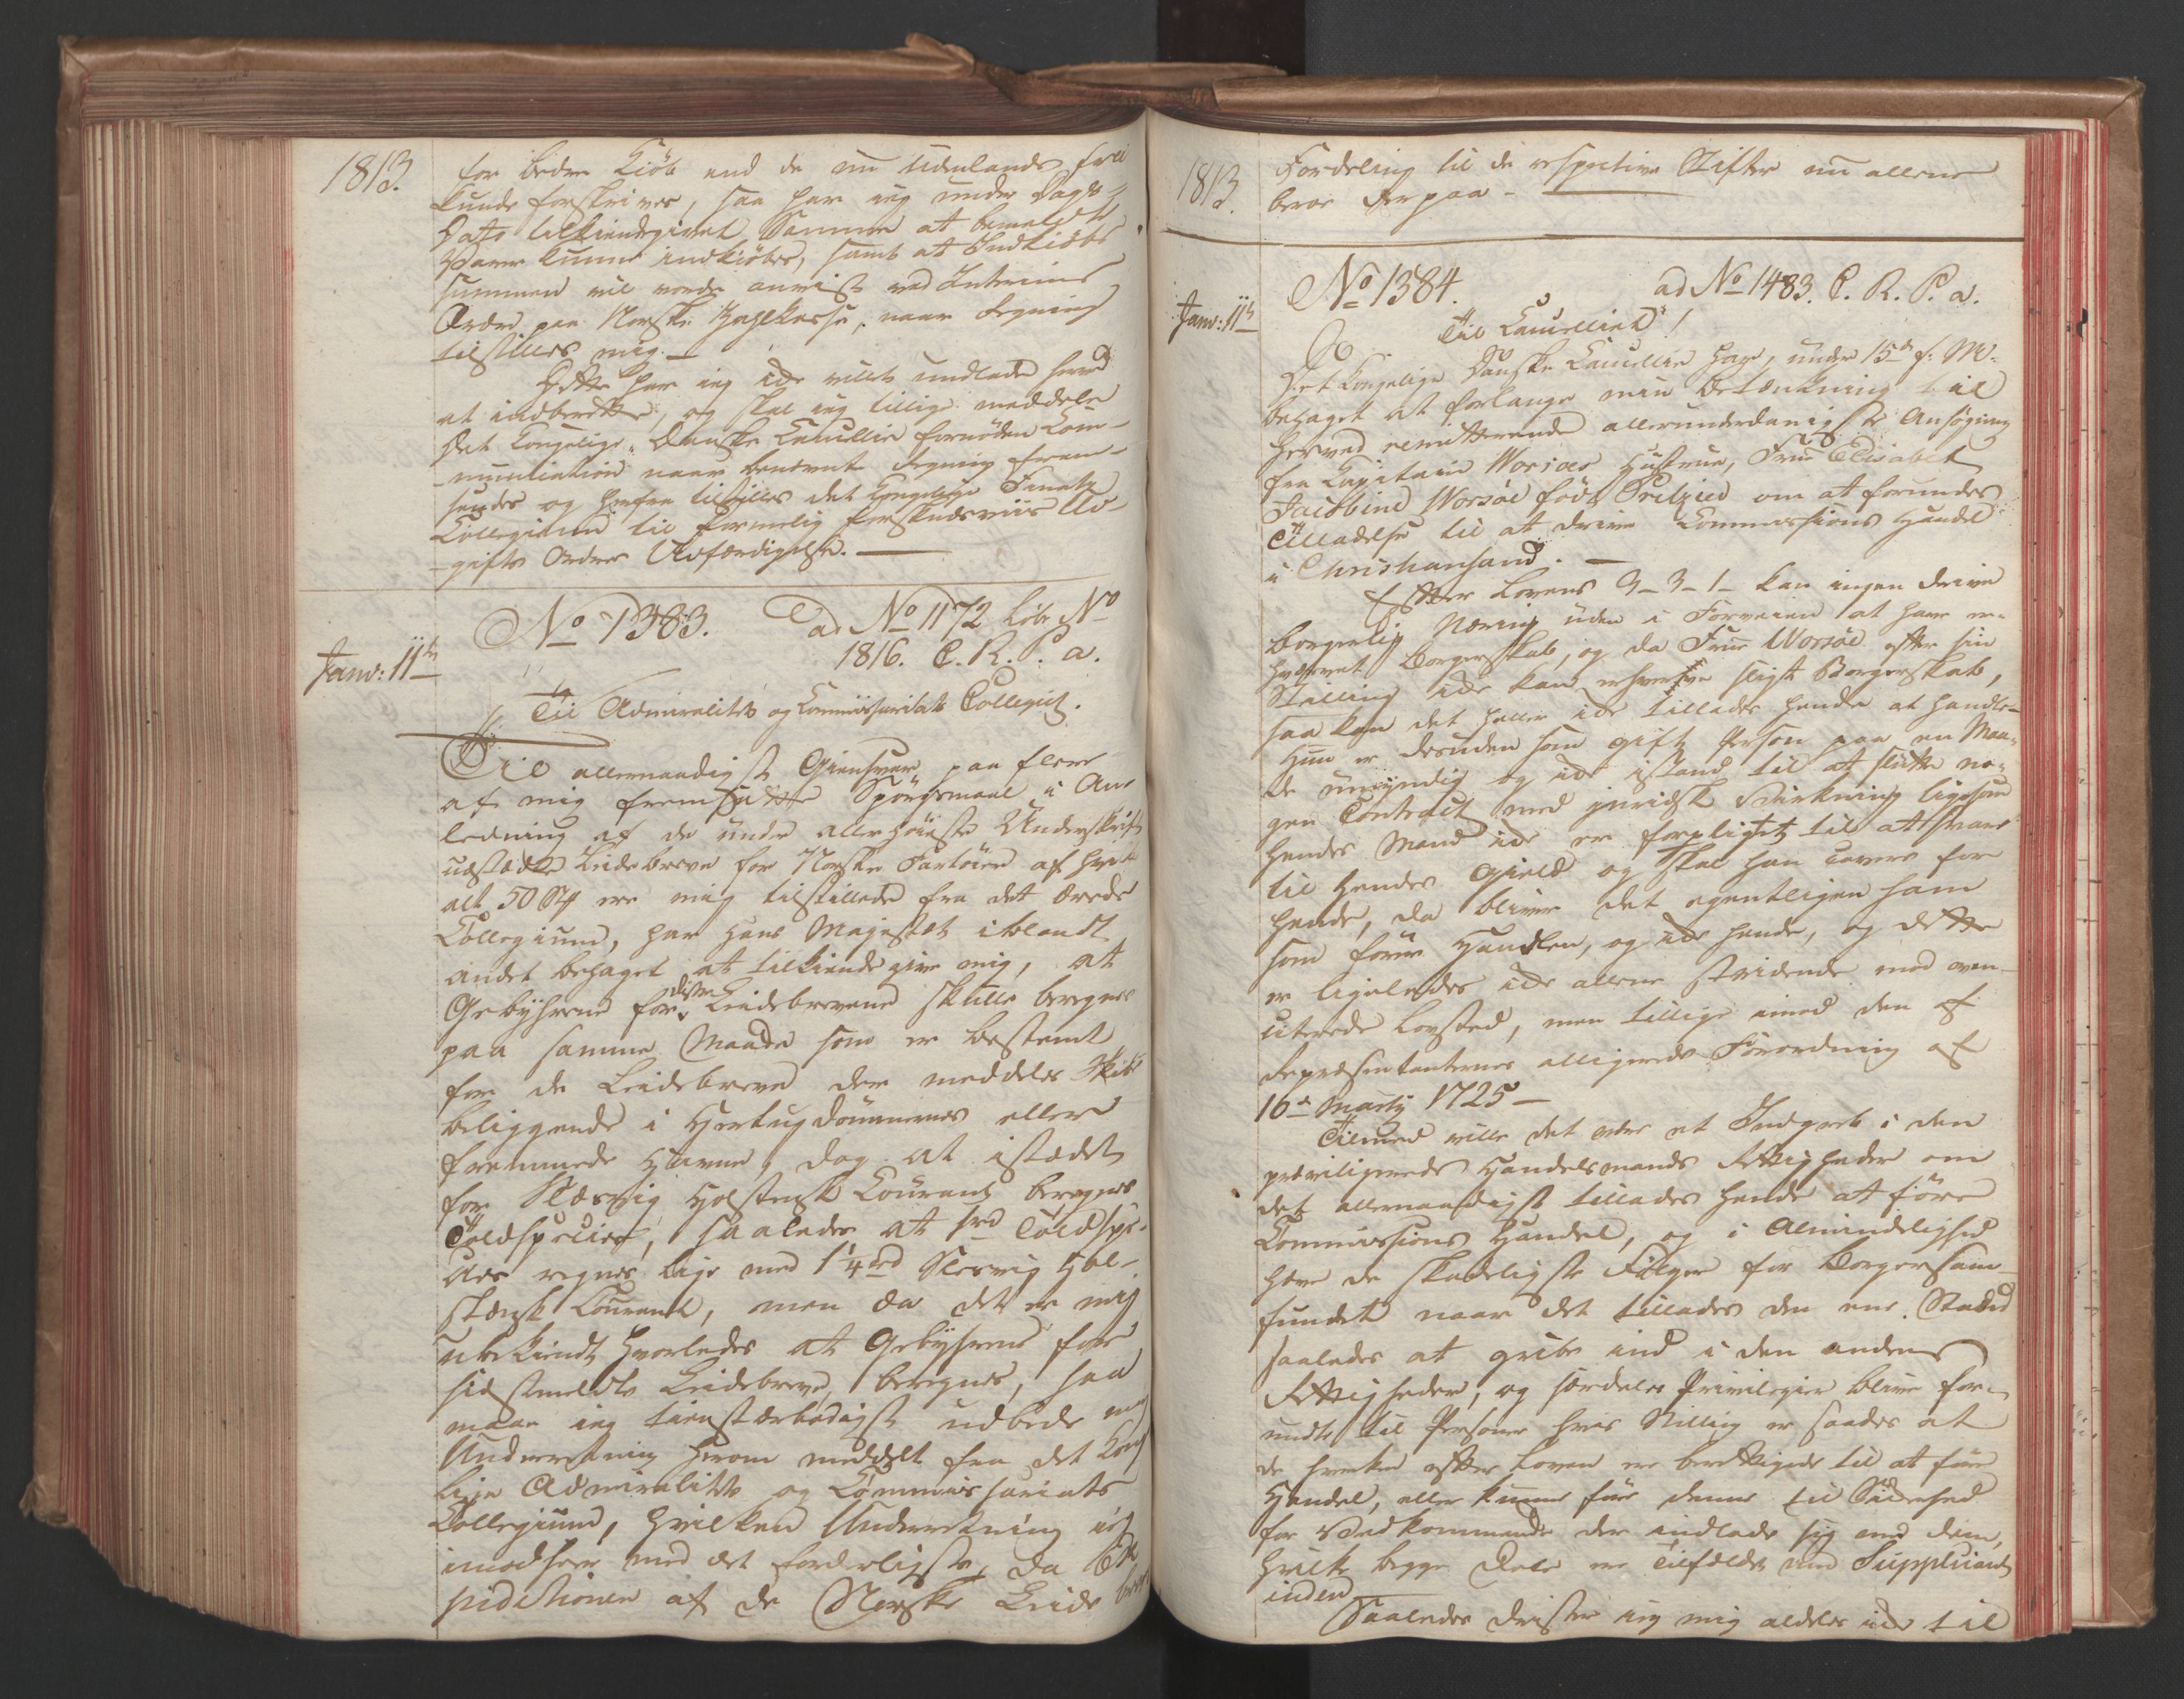 1813.
for bedre Kiöb end de nu udenlands fra
kunde forskrives, saa har jeg under Dags
Dato tilkiendegivet Samme at bemeldte
Varer kunne indkiöbes, samt at Indkiöbs
summen vil vorde anviist ved Interims
Ordre paa Norske Zahlkasse, naar Regning
tilstilles mig. —
Dette har jeg ikke villet undlade herved
at indberette, og skal jeg tillige meddele
Det Kongelige Danske Cancellie fornöden Com-
munication naar benævnte Regning frem-
sendes og herfra tilstilles det Kongelige Finantz
Collegium til formelig forskudsviis Ud-
gifts Ordres Udfærdigelse. —
No 1383. ad No 1172 löbe No
1816. C. R. P. a.
Janv: 11te
Til Admiralitets og Commissariats Collegiet.
Til allernaadigst Giensvar paa flere
af mig fremsatte Spörgsmaal i An-
ledning af de under allerhöieste Underskrift
udstædte Leidebreve for Norske Fartöier af hvilke
alt 50 Stk ere mig tilstillede fra det ærede
Collegium, har Hans Majestæt iblandt
andet behaget at tilkiendegive mig, at
Gebyhrene for disse Leidebrevene skulle beregnes
paa samme Maade som er bestemt
for de Leidebreve der meddeles Skibe
beliggende i Hertugdömmernes eller
fremmede Havne, dog at istædet
for Slesvig Holsteensk Courant beregnes
Toldspecier, saaledes at 1rd Toldspe-
cies regnes lige med 1 1/4 rd Slesvig Hol-
steensk Courant, men da det er mig
ubekiendt hvorledes at Gebyhrene for
sidstmeldte Leidebreve beregnes, saa
maae jeg tienstærbödigst udbede mig
Underretning herom meddelt fra det Konge
lige Admiralitets og Commissariats
Collegium, hvilken Underretning jeg
imodseer med det forderligste, da Ex-
peditionen af de Norske Leide breve
1813.
Fordeling til de respective Stifter nu allene
beroe derpaa. —
No 1384. ad No 1483. C. R. P. a.
Janv: 11te
Til Cancelliet!
Det Kongelige Danske Cancellie har, under 15de f: M:
behaget at forlange min Betænkning til
herved remitterende allerunderdanigste Ansögning
fra Kapitain Worsöes Hustrue, Frue Elisabet
Jacobine Worsöe föd Prelzied om at forundes
Tilladelse til at drive Commissions Handel
i Christiansand. —
Efter Lovens 3-3-1- kan ingen drive
borgerlig Næring uden i Forveien at have er-
hvervet Borgerskab, og da Frue Worsöe efter sin
Stilling ikke kan erhverve sligt Borgerskab,
saa kan det heller ikke tillades hende at handle.
Hun er desuden som gift Person paa en Maa-
de umyndig og ikke istand til at slutte no-
gen Contract med juridisk Virkning ligesom
hendes Mand ikke er forpligtet til at svare
til hendes Gield og skal han cavere for
hende, da bliver det egentligen ham
som förer Handlen, og ikke hende, og dette
er ligeledes ikke allene stridende mod oven-
citerede Lovsted, men tillige imod den af
Repræsentanterne allegerede Forordning af
16de Martij 1725 —
Tilmed ville det være et Indgreb i den
previligerede Handelsmands Rettigheder om
det allernaadigst tillades hende at före
Commissions Handel, og i Almindelighed
have de skadeligste Fölger for Borgersam-
fundet naar det tillades den ene Stand
saaledes at gribe ind i den andens
Rettigheder, og særdeles Privilegier blive for-
undte til Personer hvis Stilling er saadan at
de hverken efter Loven ere berettigede til at före
Handel, eller kunne före denne til Sikkerhed
for Vedkommende der indlade sig med dem,
hvilke begge Dele ere Tilfældet med Supplicant
inden
Saaledes drister jeg mig aldeles ikke til